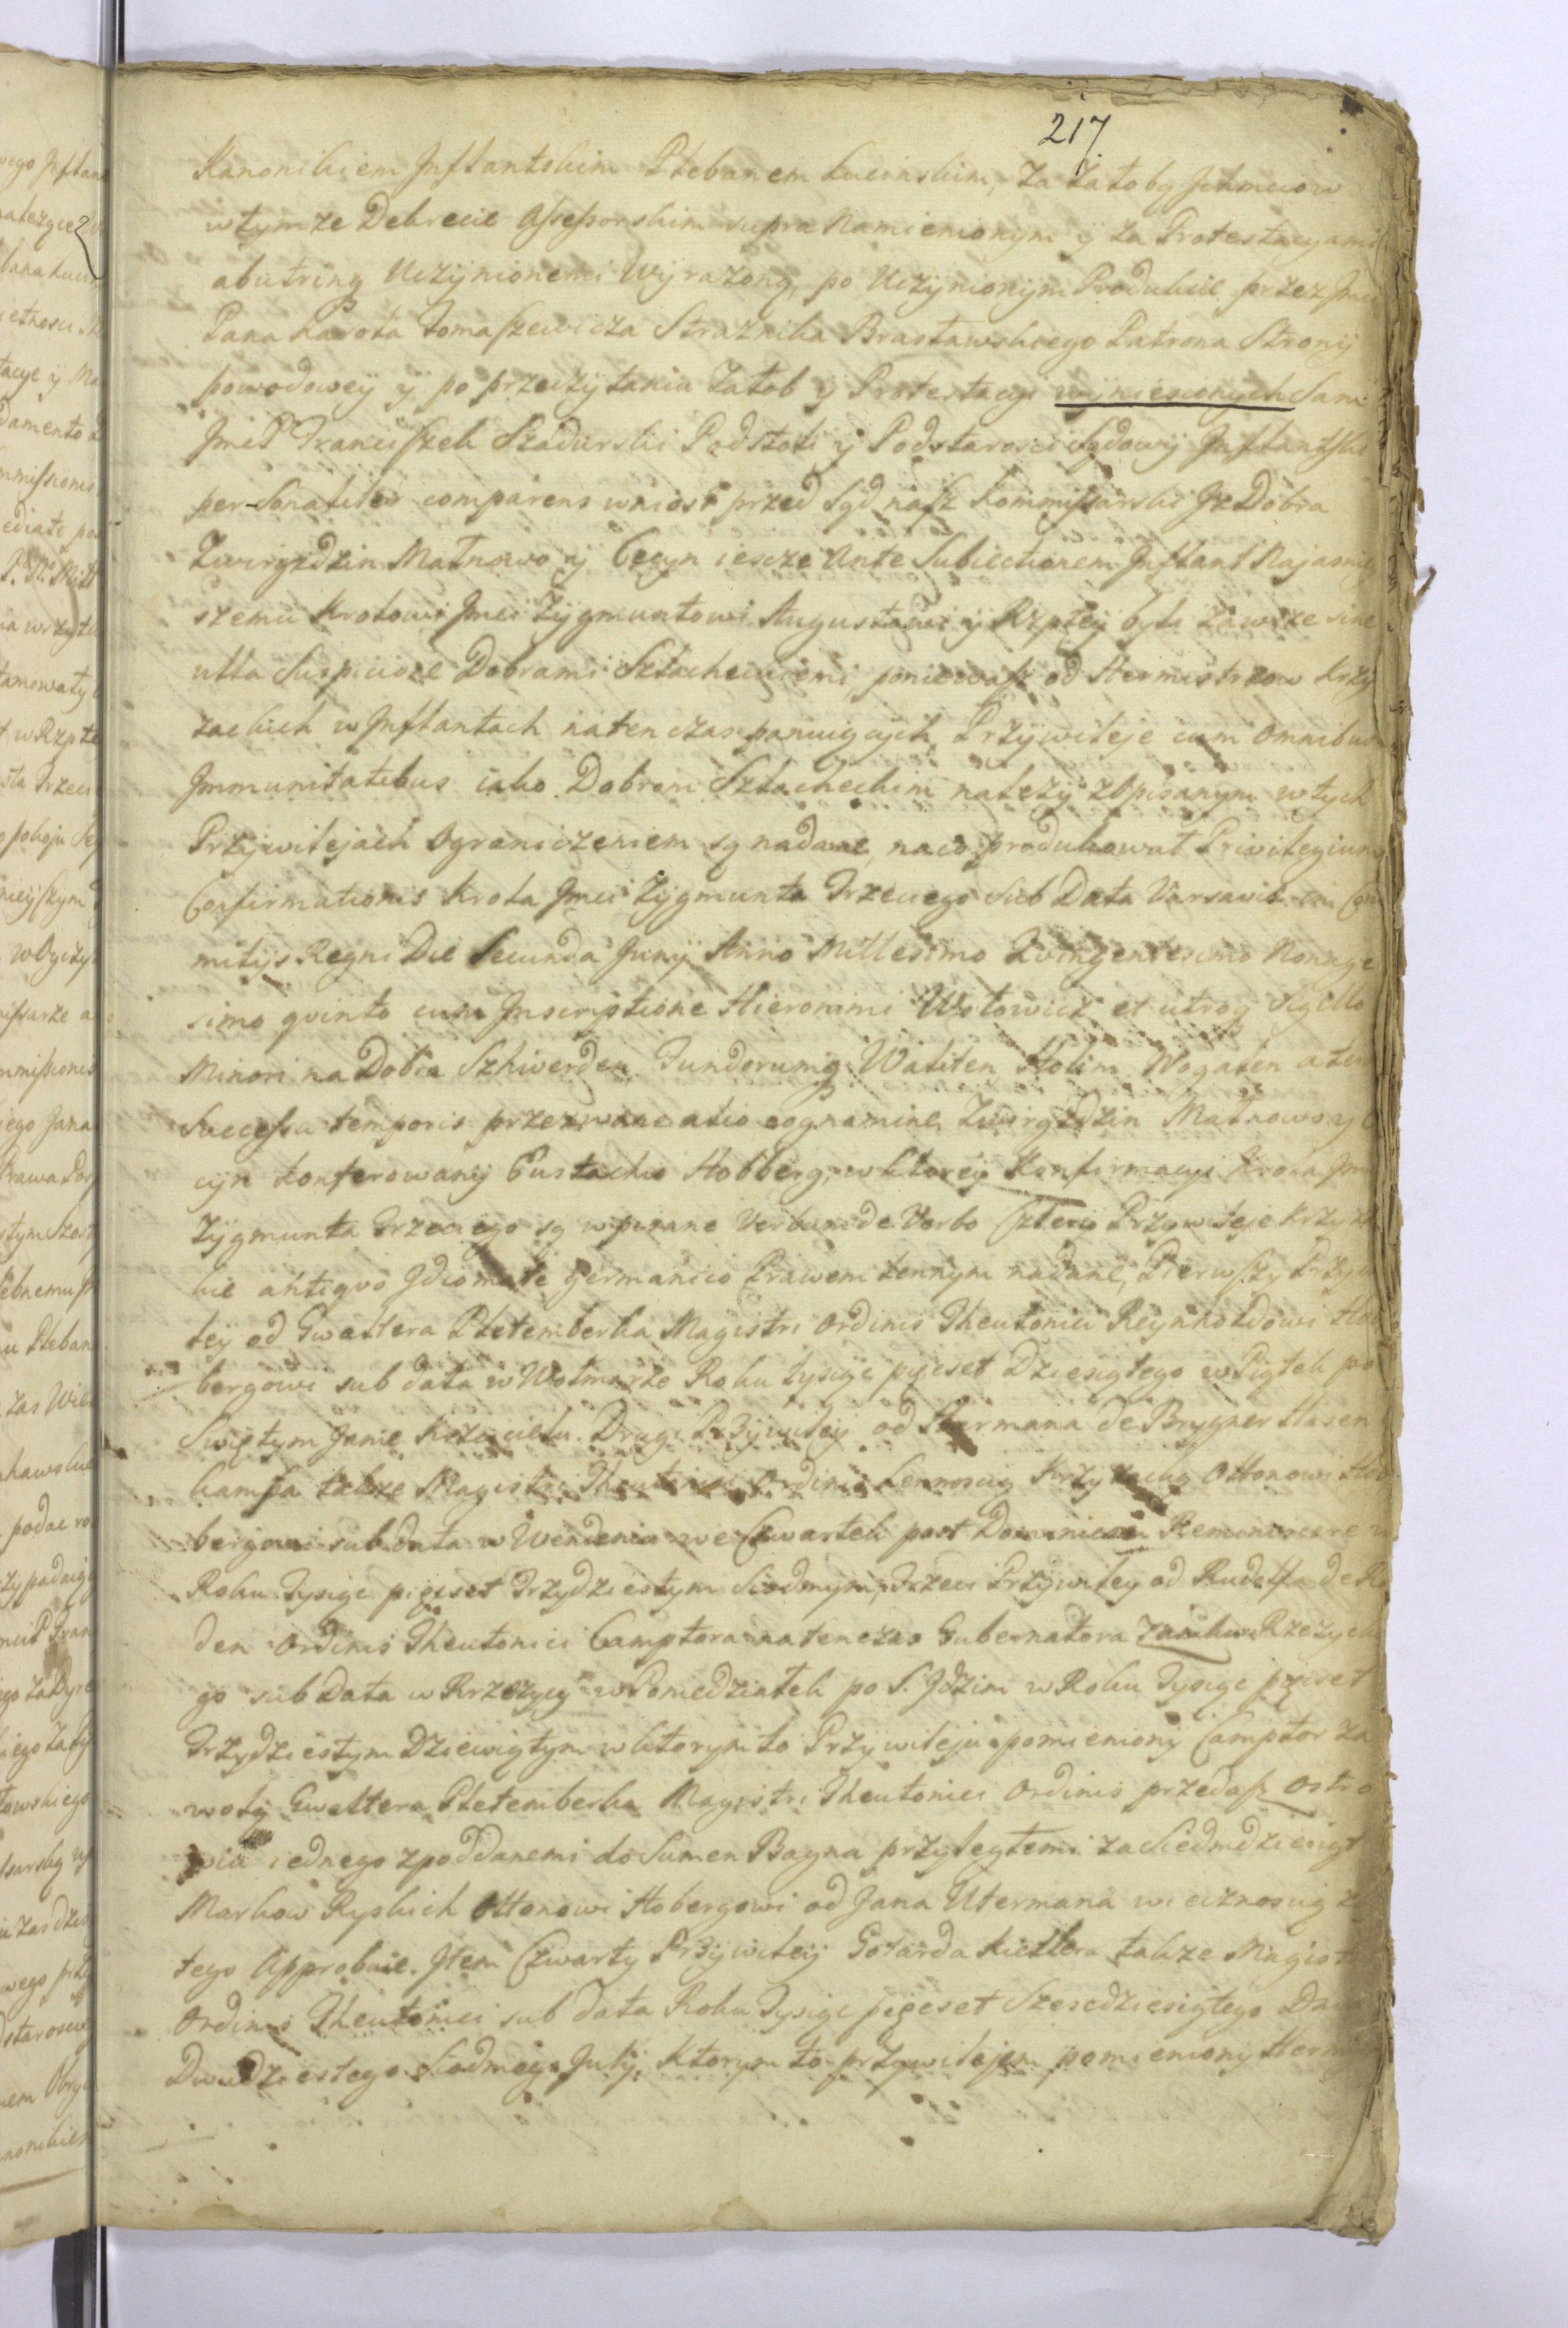 217.
Kanonikiem Inflantskim Plebanem Lucinskim, za Załobą Jchmciow
w tymze Dekrecie Assessorskim supra namienionym y za Protestacyami
abutrinq Uczynionemi Wyrazoną, po Uczynionym Produkcie przez Jmci
Pana Karola Tomaszewicza Straznika Brasławskiego Patrona Strony
powodowey y po przeczytaniu Załob y Protestacyi wyniesionych Sam
JmcP Franciszek Szadurski Podstoli y Podstarosci Sądowy Inflantski
personaliter comparens wniosł przed Sąd nasz Kommissarski Jz Dobra
Zwirzdzin Małnowo y Cecyn iescze Ante Subiectionem Inflant Najasniey
szemu Krolowi Jmci Zygmuntowi Augustowi y Rzptey byli zawsze sine
ulla Suspicione Dobrami Szlacheckiemi, poniewasz od Hermistrzow Krzy
zackich w Inflantach natenczas panuiących, Przywileje cum Omnibus
Jmmunitatibus iako Dobrom Szlacheckim nalezy z Opisanym w tych
Przywilejach Ograniczeniem są nadane, naco produkował Privilegium
Confirmationis Krola Jmci Zygmunta Trzeciego Sub Data Varsaviæ in Com
mitijs Regni Die Secunda Junij Anno Millesimo Qvingentesimo Nonage
simo qvinto cum Inscriptione Hieronimi Wołowicz et utroq Sigillo
Minori na Dobra Szkwerden Fundorumq Waliten Stolim Nogalen a ten
Successu temporis przezwane alio cognomine Zwirzdzin Małnowo y Ce
cyn konferowany Eustachio Hobberg, w ktorey Konfirmacyi Krola Jmci
Zygmunta Trzeciego są wpisane Verbum de Verbo Cztery Przywileje Krzyza
kie antiqvo Jdiomate Germanico Prawem Lennym nadane, Pierwszy Przywi
ley od Gweltera Pletemberka Magistri Ordinis Theutonici Reynholdowi Hob
bergowi sub data w Wolmarze Roku tysiąc pięcset Dziesiątego w Piątek po
Swiętym Janie Krzcicielu. Drugi Przywiley od Hermana de Brygner Hasen
kampfa takze Magistri Theutonici Ordinis Lennoscią Krzyzacką Ottonowi Hob
bergowi sub data w Wendenie we Czwartek post Dominicam Reminiscere w
Roku Tysiąc pięcset Trzydziestym Siodmym, Trzeci Przywiley od Rudolfa de Ra
den Ordinis Theutonici Camptora natenczas Gubernatora Zamku Rzezyck
go sub Data w Rzezycy w Poniedziałek po S. Jdzim w Roku Tysiąc pięcset
Trzydziestym Dziewiątym w ktorym to Przywileju pomieniony Camptor za
wolą Gweltera Pletemberka Magistri Theutonici Ordinis przedasz Ostro
wia iednego z poddanemi do Sumen Bagna przyległemi za Siedmdziesiąt
Markow Ryskich Ottonowi Hobergowi od Jana Utermana wiecznoscią ze
tego Approbuie. Jtem Czwarty Przywiley Gotarda Kiettlera takze Magist
Ordinis Theutonici sub data Roku Tysiąc pięcset Szescdziesiątego Dnia
Dwudziestego Siodmego Julij, ktorym to przywilejem pomieniony Hermi